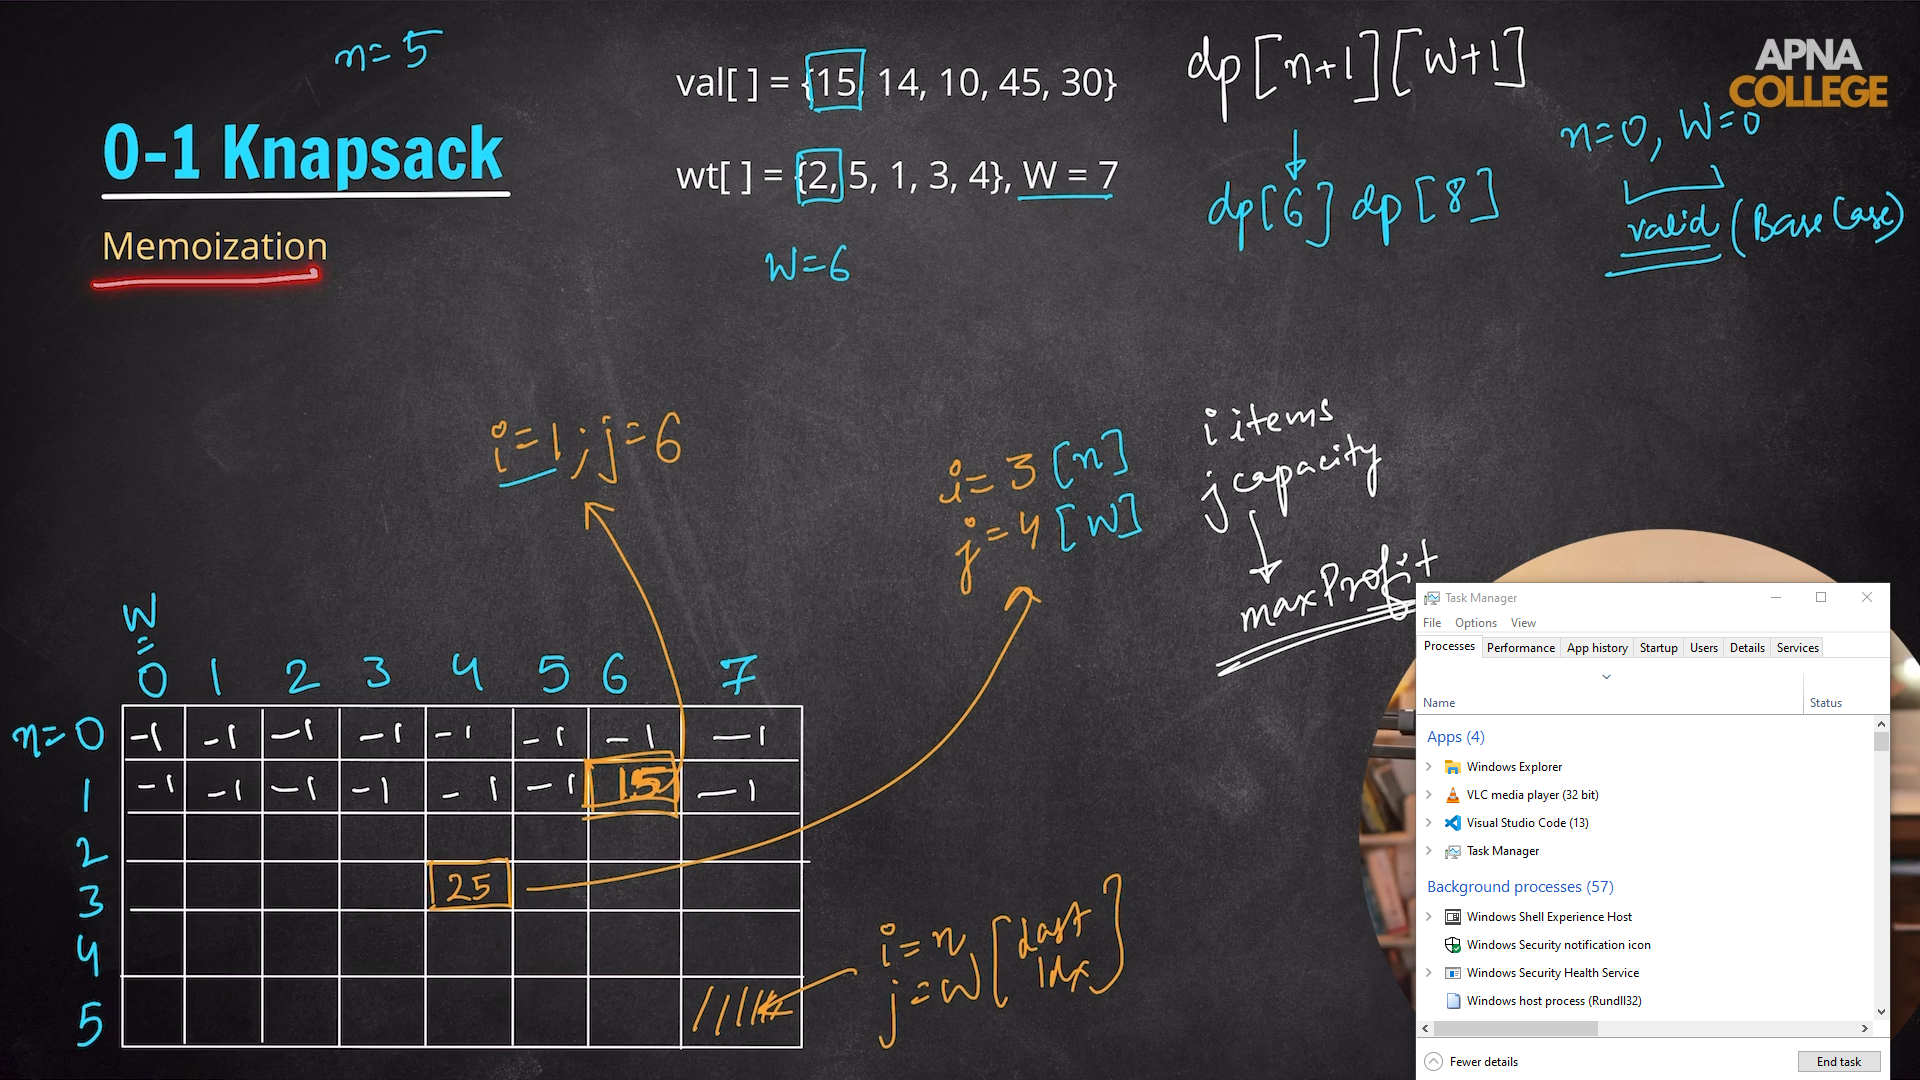 n=5
val[ ] = {15, 14, 10, 45, 30}
dp[n+1][W+1]
APNA
COLLEGE
0-1 Knapsack
wt[ ] = {2, 5, 1, 3, 4}, W = 7
n=0, W=0
dp[6] dp[8]
valid (Base Case)
Memoization
W=6
i=1; j=6
i=3 [n]
j=4 [W]
i items
j capacity
maxProfit
W
=
0 1 2 3 4 5 6 7
n=0 -1 -1 -1 -1 -1 -1 -1 -1
1 -1 -1 -1 -1 -1 -1 15 -1
2
3 25
4
5
i=n
j=W [last idx]
Task Manager
File Options View
Processes Performance App history Startup Users Details Services
Name Status
Apps (4)
Windows Explorer
VLC media player (32 bit)
Visual Studio Code (13)
Task Manager
Background processes (57)
Windows Shell Experience Host
Windows Security notification icon
Windows Security Health Service
Windows host process (Rundll32)
Fewer details End task